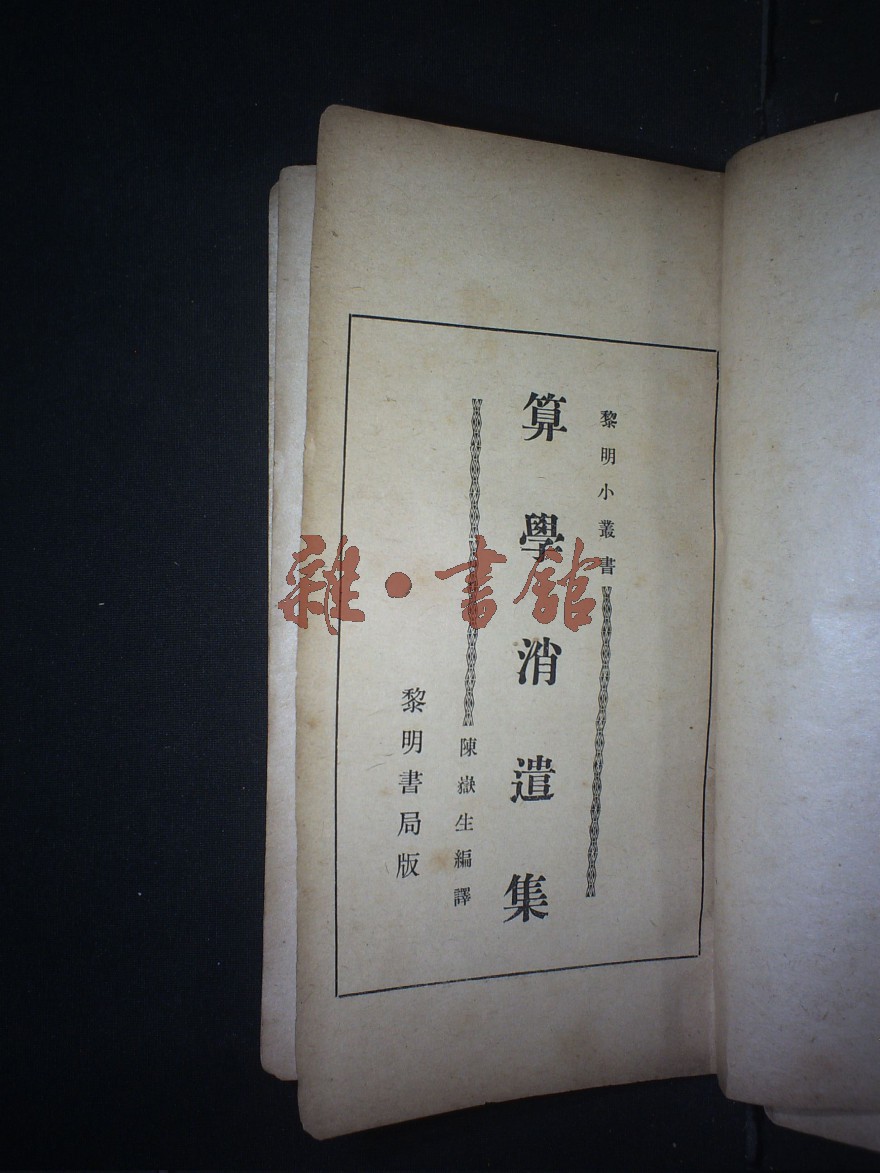 黎明小叢書
算學消遣集
陳嶽生編譯
黎明書局版
雜·書館